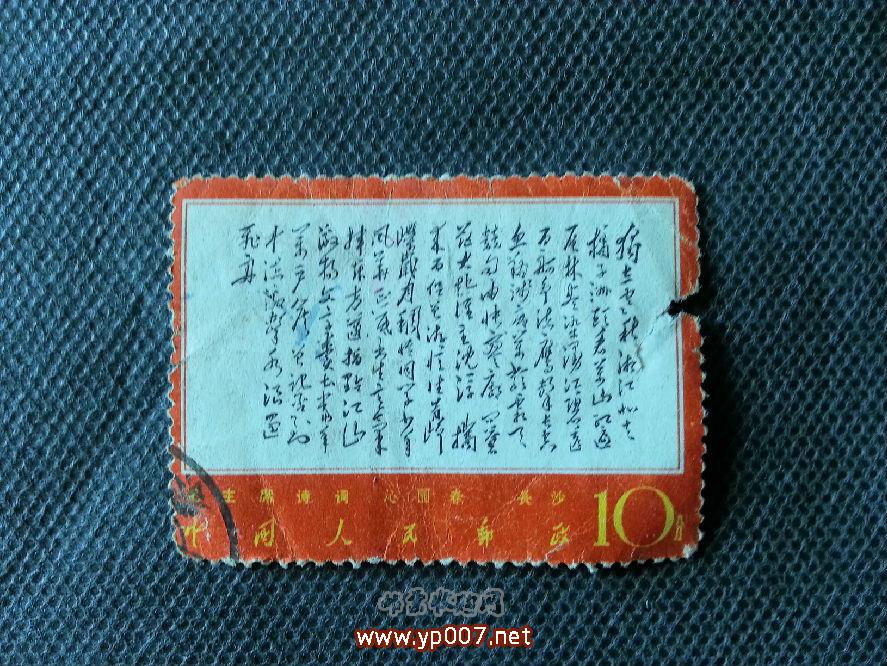 独立寒秋湘江北去
橘子洲头看万山红遍
层林尽染漫江碧透
百舸争流鹰击长空
鱼翔浅底万类霜天
竞自由怅寥廓问苍
茫大地谁主沉浮携
来百侣曾游忆往昔峥
嵘岁月稠恰同学少年
风华正茂书生意气
挥斥方遒指点江山
激扬文字粪土当年
万户侯曾记否到
中流击水浪遏
飞舟
毛主席诗词 沁园春 长沙
中国人民邮政 10分
www.yp007.net